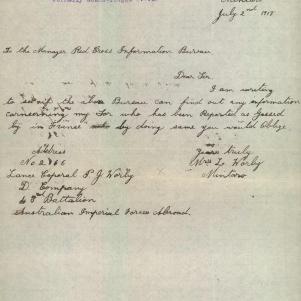 Mintaro
July 2nd 1918
To the Manager Red Cross Information Bureau
Dear Sir.
I am writing
to see if the Bureau can find out any information
concerning my Son who has been Reported as Gassed
by in France by doing same you would Oblige
Address
Yours truly
No 2766
Mrs L Worby
Lance Corporal P J Worby
Mintaro
D Company
Battalion
Australian Imperial Forces Abroad.